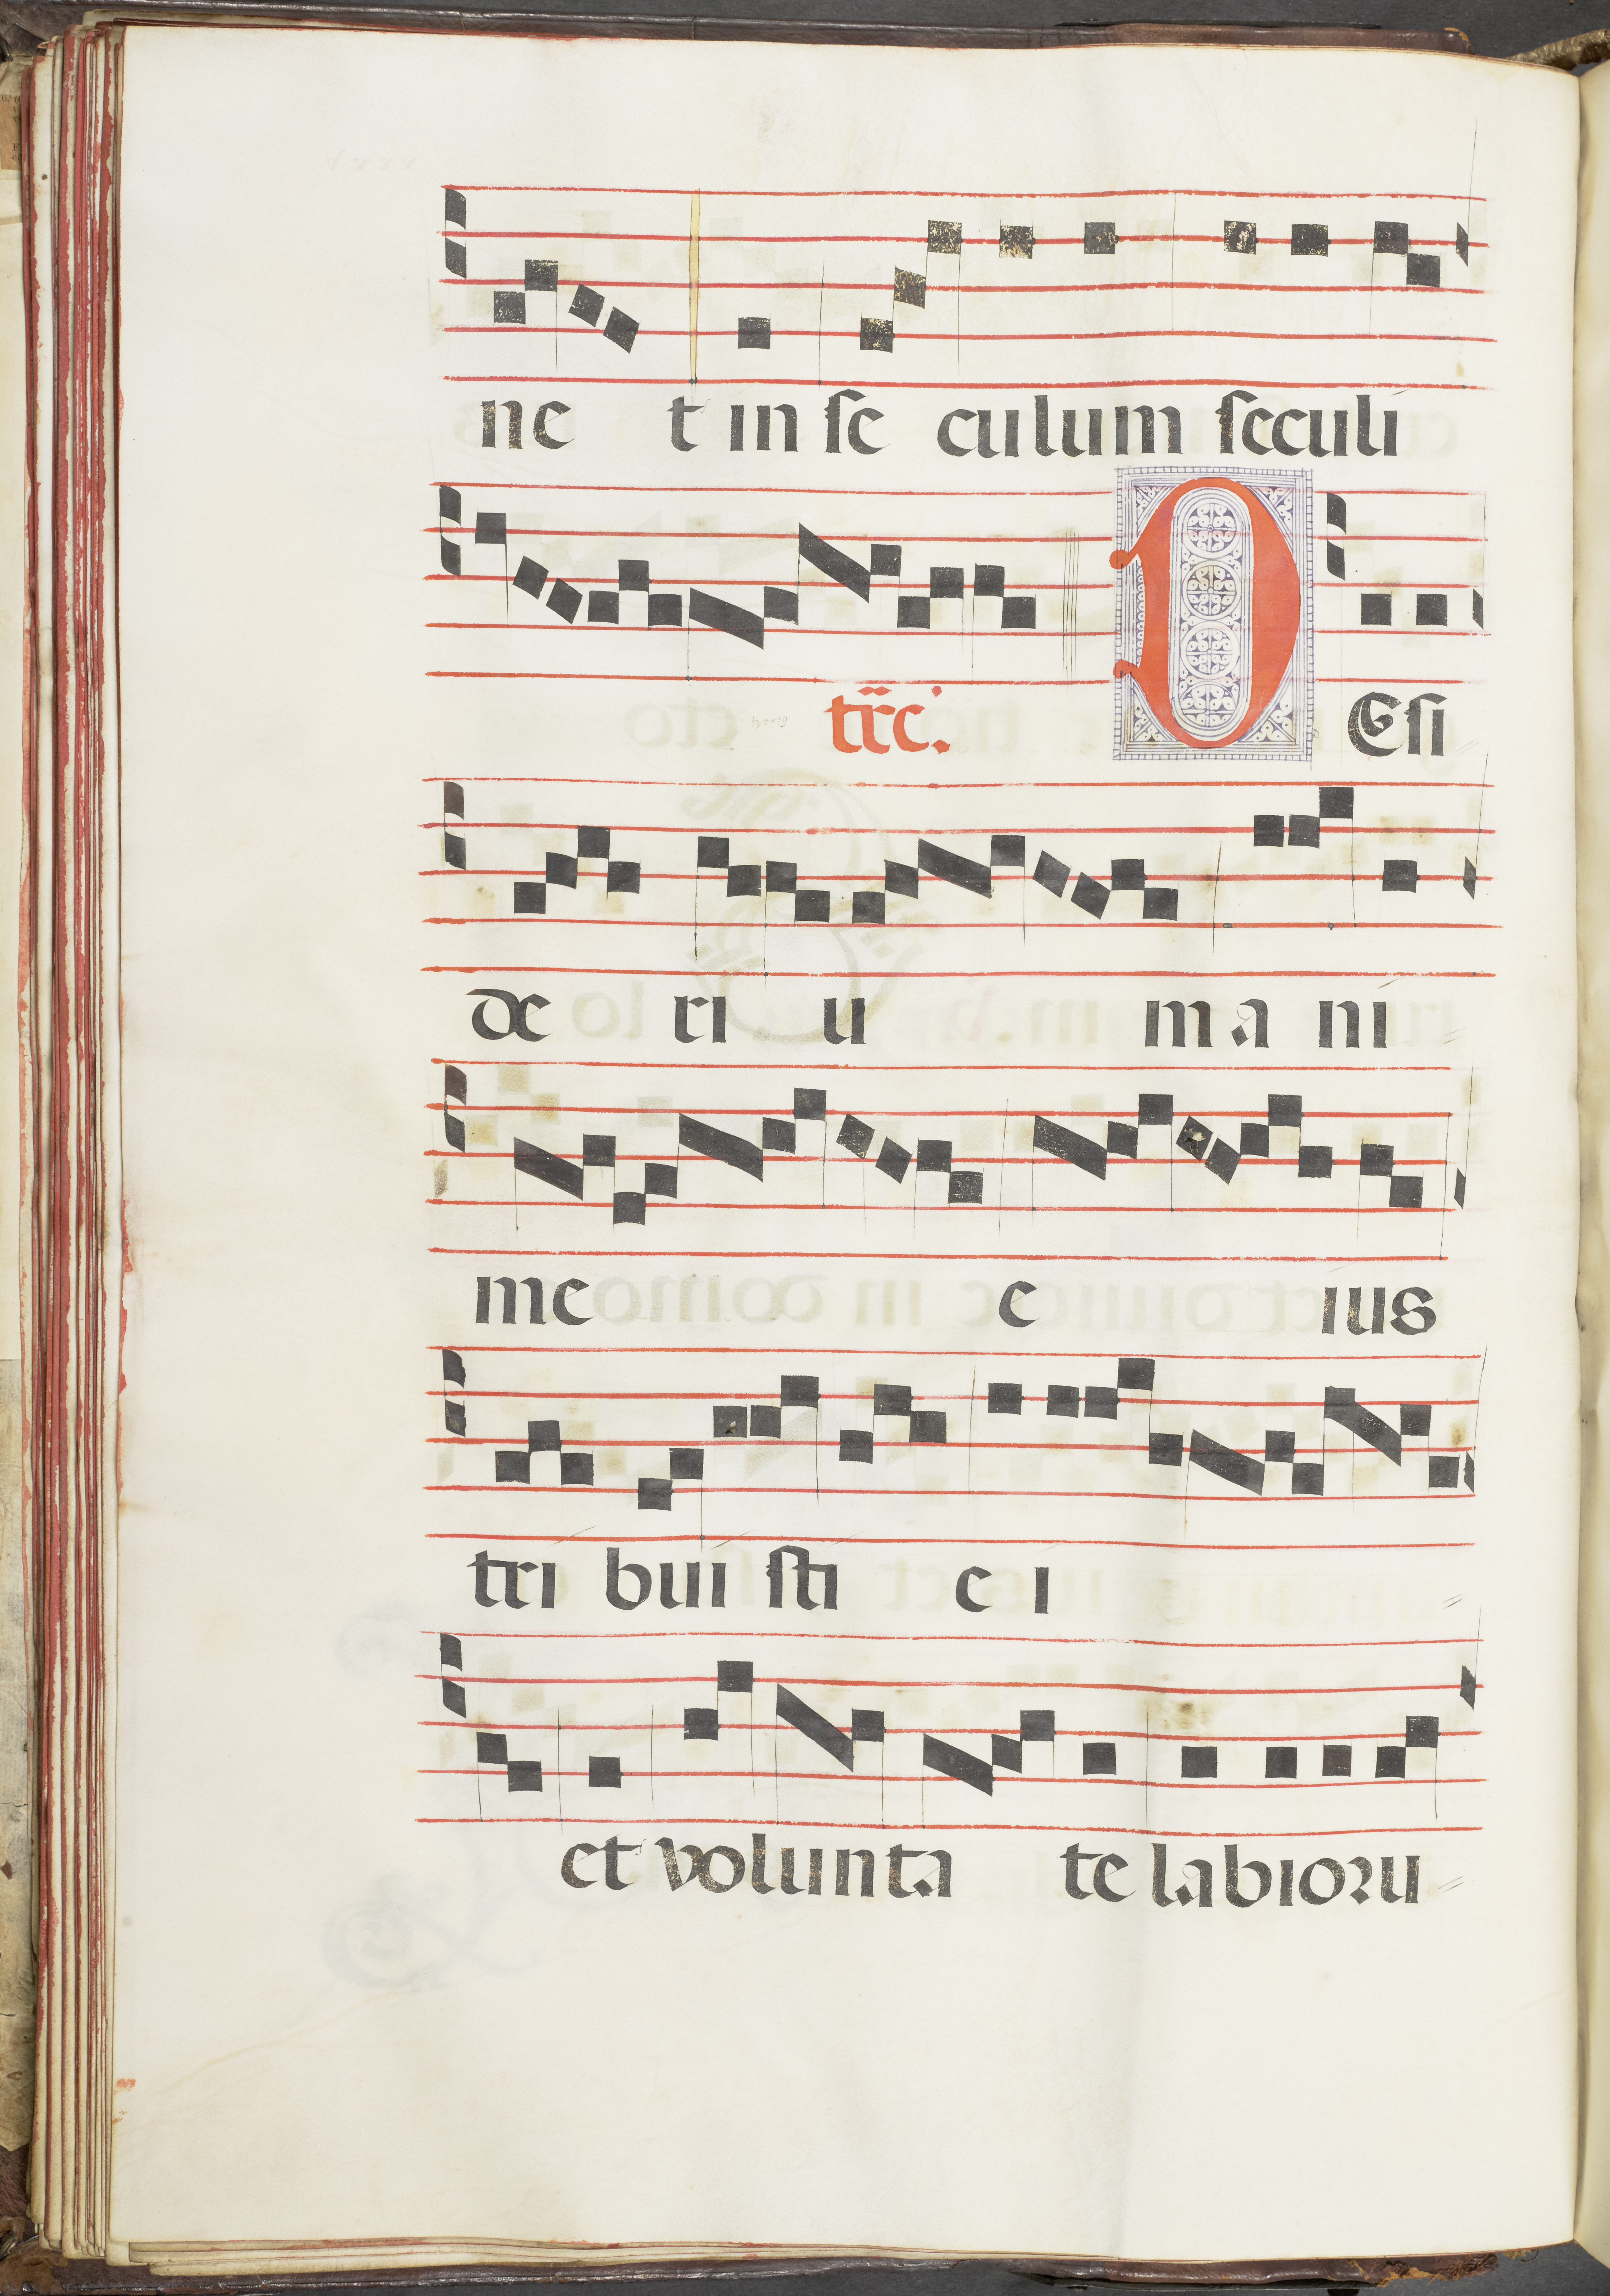 ne t in ſe culum ſeculi
tr̄c. D Eſi
de ri u m a ni
me e ius
tri bui ſti e i
et volunta te labioꝛu